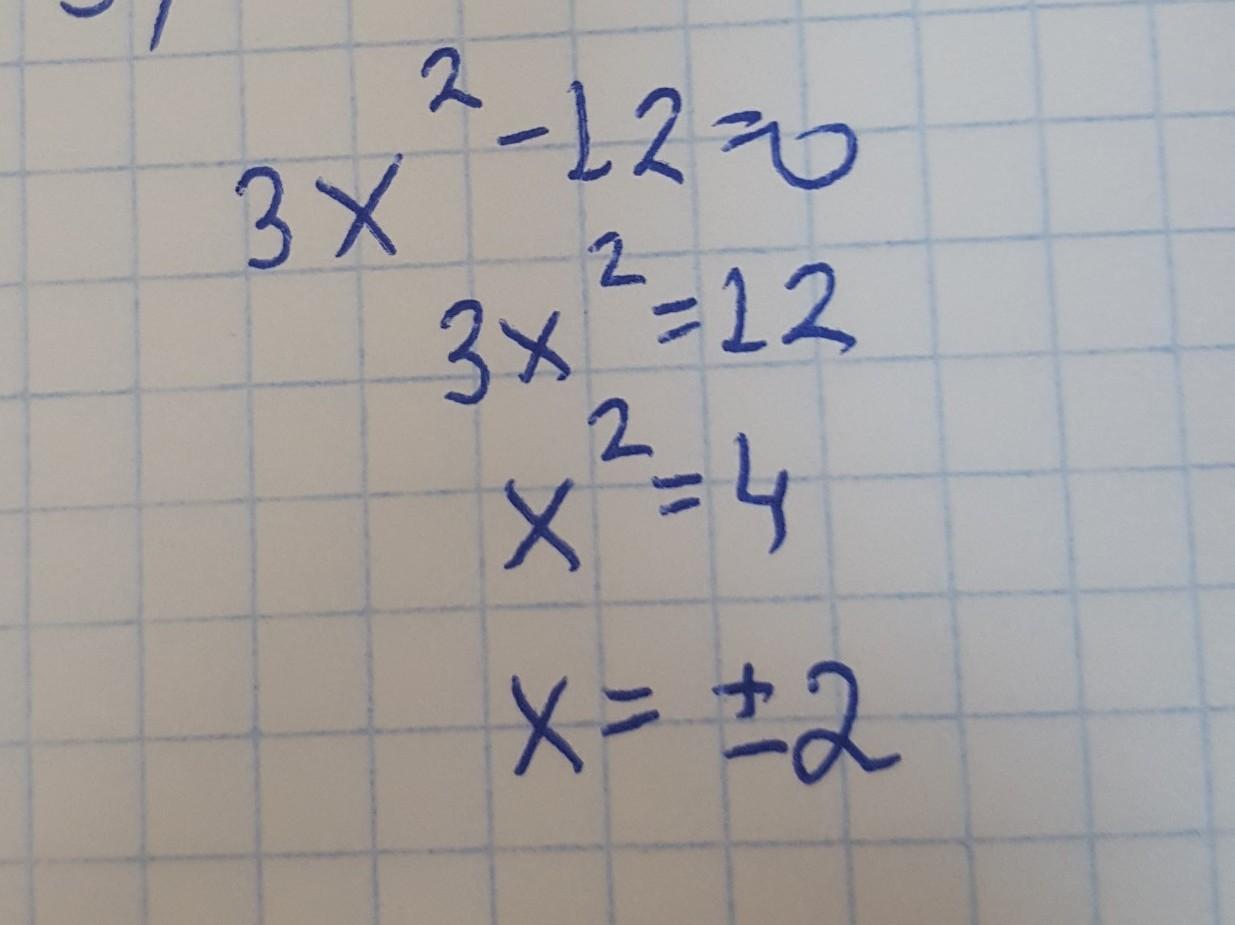 3x² -12=0
3x² =12
x² = 4
x = ±2